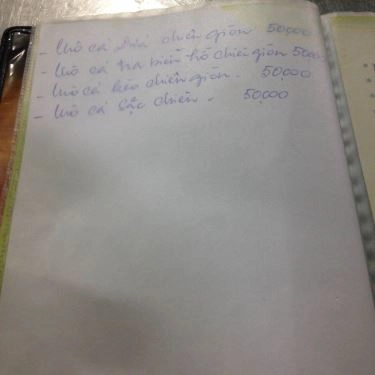 - khô cá dứa chiên giòn 50,000
- khô cá tra biển hồ chiên giòn 50,000
- khô cá kèo chiên giòn. 50,000
- khô cá sặc chiên. 50,000